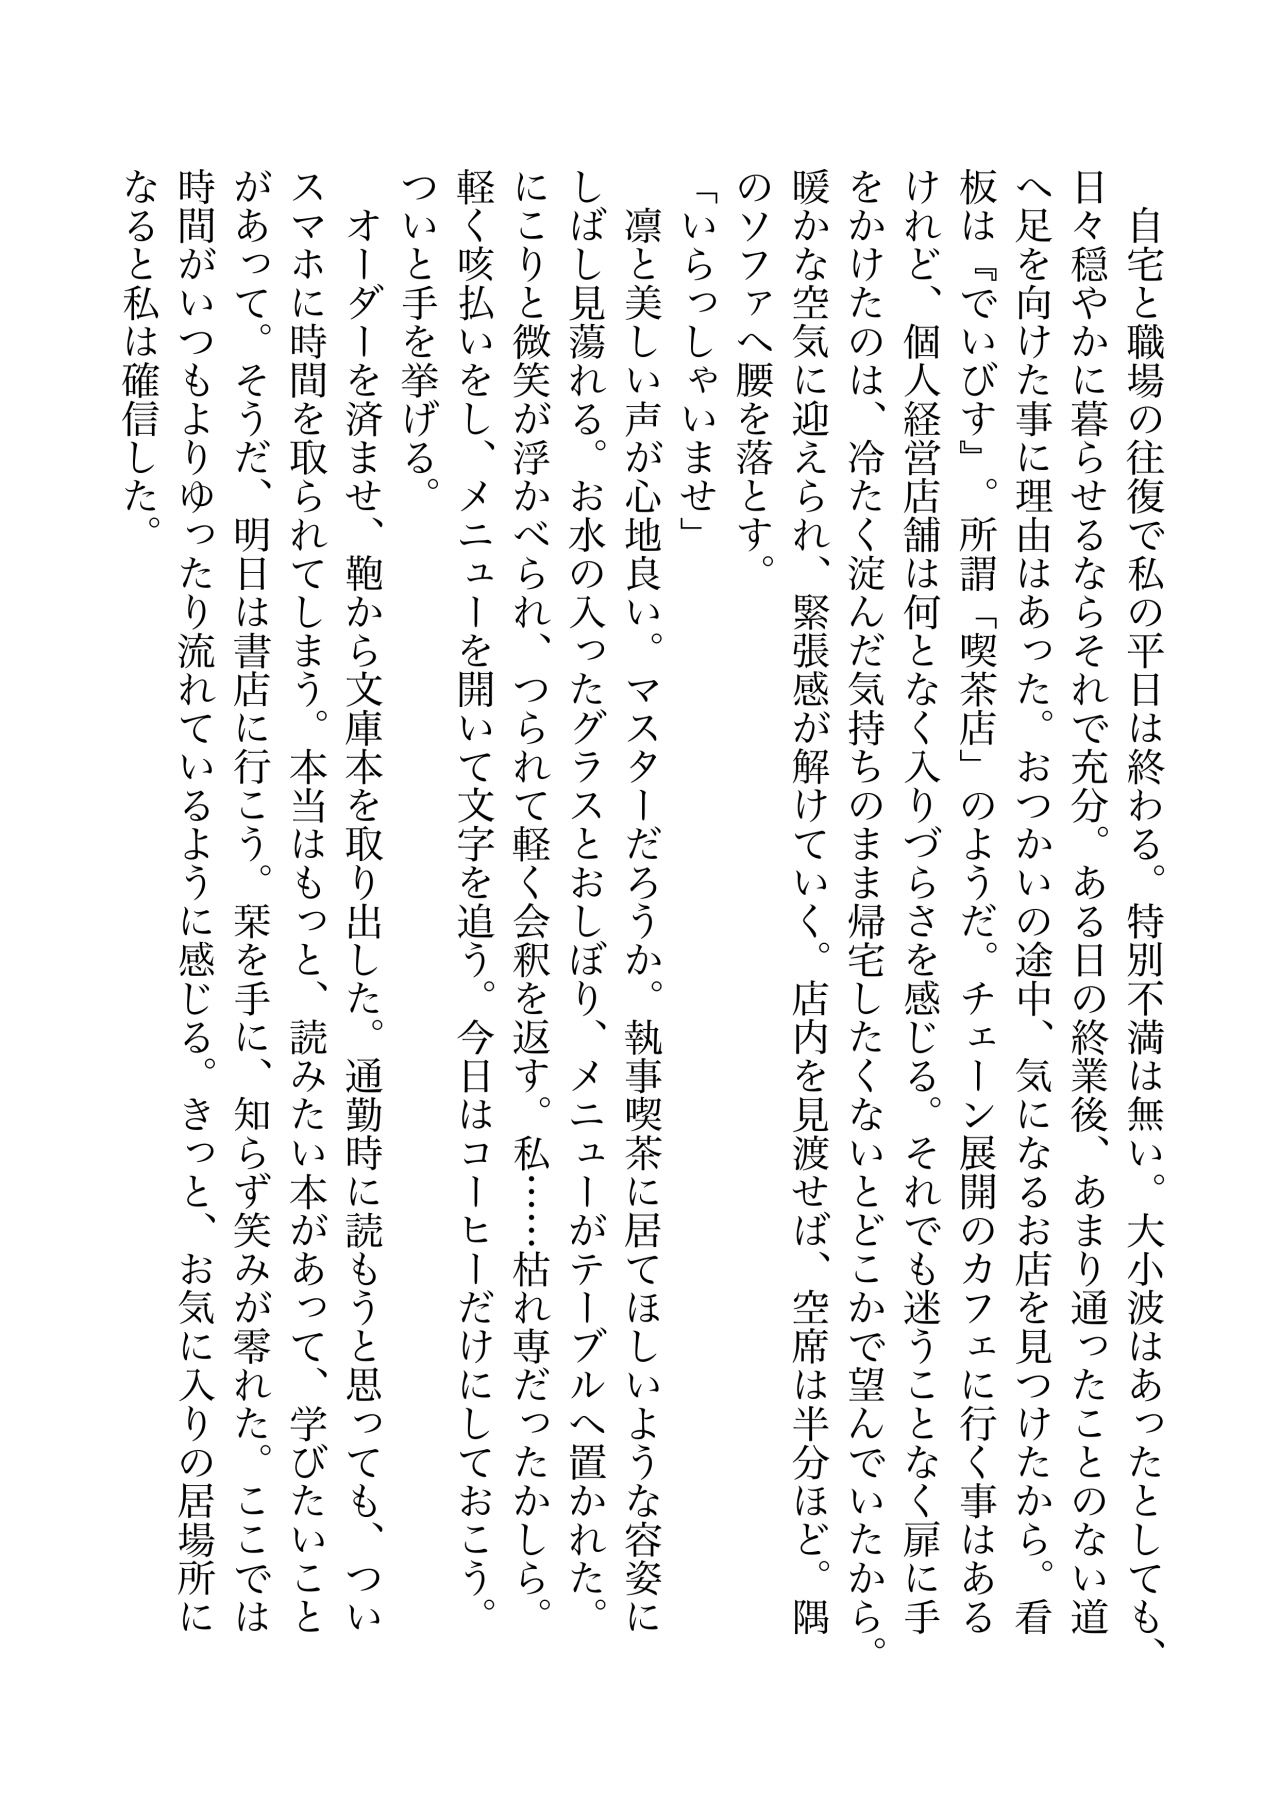 自宅と職場の往復で私の平日は終わる。特別不満は無い。大小波はあったとしても、
日々穏やかに暮らせるならそれで充分。ある日の終業後、あまり通ったことのない道
へ足を向けた事に理由はあった。おつかいの途中、気になるお店を見つけたから。看
板は『でいびす』。所謂「喫茶店」のようだ。チェーン展開のカフェに行く事はある
けれど、個人経営店舗は何となく入りづらさを感じる。それでも迷うことなく扉に手
をかけたのは、冷たく淀んだ気持ちのまま帰宅したくないとどこかで望んでいたから。
暖かな空気に迎えられ、緊張感が解けていく。店内を見渡せば、空席は半分ほど。隅
のソファへ腰を落とす。
「いらっしゃいませ」
凛と美しい声が心地良い。マスターだろうか。執事喫茶に居てほしいような容姿に
しばし見蕩れる。お水の入ったグラスとおしぼり、メニューがテーブルへ置かれた。
にこりと微笑が浮かべられ、つられて軽く会釈を返す。私……枯れ専だったかしら。
軽く咳払いをし、メニューを開いて文字を追う。今日はコーヒーだけにしておこう。
ついと手を挙げる。
オーダーを済ませ、鞄から文庫本を取り出した。通勤時に読もうと思っても、つい
スマホに時間を取られてしまう。本当はもっと、読みたい本があって、学びたいこと
があって。そうだ、明日は書店に行こう。栞を手に、知らず笑みが零れた。ここでは
時間がいつもよりゆったり流れているように感じる。きっと、お気に入りの居場所に
なると私は確信した。